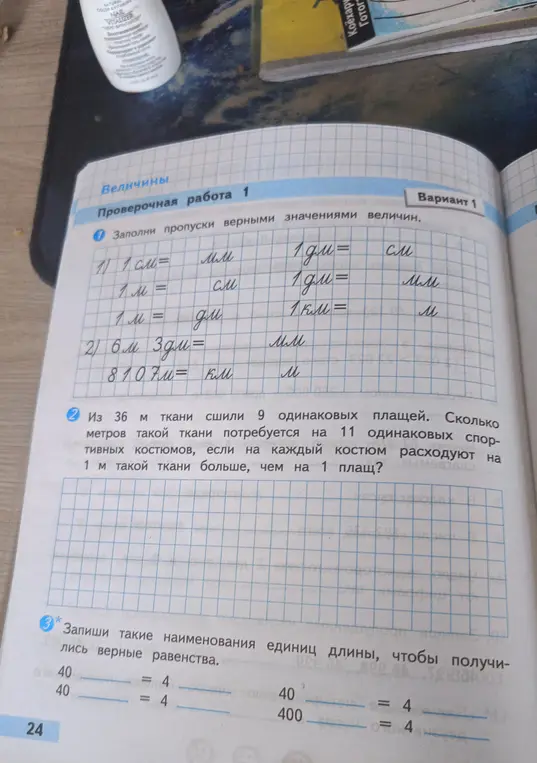 Величины
Проверочная работа 1
Вариант 1
1 Заполни пропуски верными значениями величин.
1) 1 см = мм 1 дм = см
1 м = см 1 дм = мм
1 м = дм 1 км = м
2) 6 м 3 дм = мм
8107 м = км м
2 Из 36 м ткани сшили 9 одинаковых плащей. Сколько
метров такой ткани потребуется на 11 одинаковых спор-
тивных костюмов, если на каждый костюм расходуют на
1 м такой ткани больше, чем на 1 плащ?
3* Запиши такие наименования единиц длины, чтобы получи-
лись верные равенства.
40 ____ = 4 ____ 40 ____ = 4 ____
40 ____ = 4 ____ 400 ____ = 4 ____
24